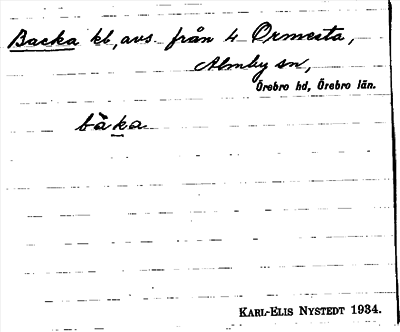 Backa kb, avs. från 4 Ormesta,
Almby sn,
Örebro hd, Örebro län.
båka
KARL-ELIS NYSTEDT 1934.